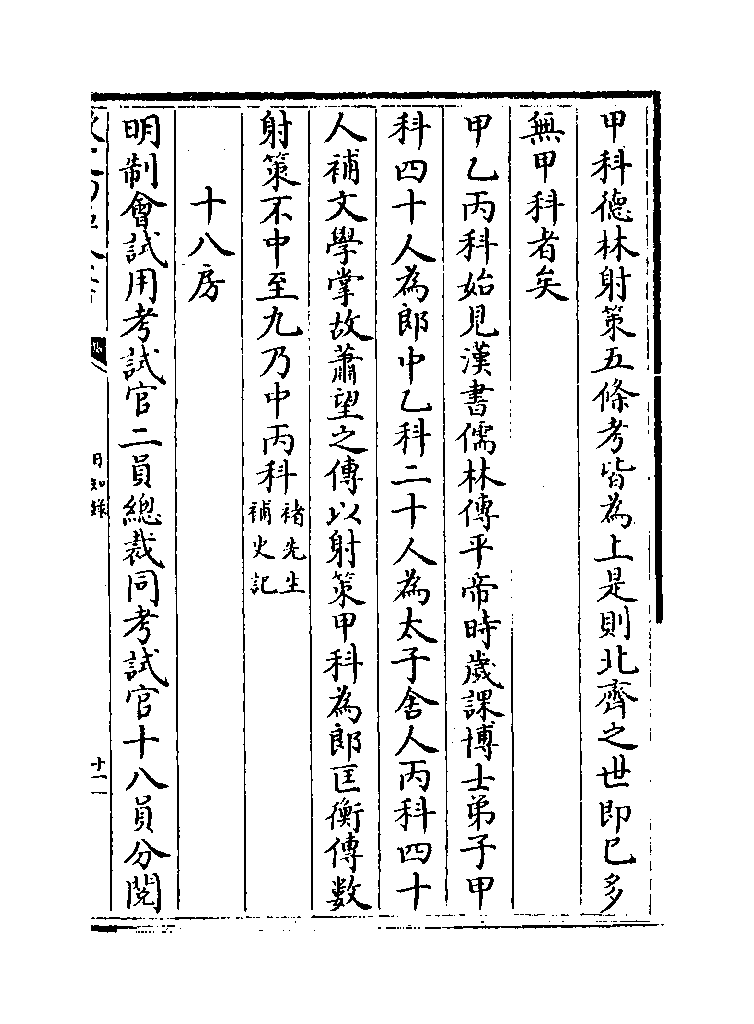 甲科德林射策五條考皆為上是則北齊之世即已多
無甲科者矣
甲乙丙科始見漢書儒林傳平帝時歲課博士弟子甲
科四十人為郎中乙科二十人為太子舍人丙科四十
人補文學掌故蕭望之傳以射策甲科為郎匡衡傳數
射策不中至九乃中丙科褚先生
補史記
十八房
明制會試用考試官二員總裁同考試官十八員分閱
日知錄
十一